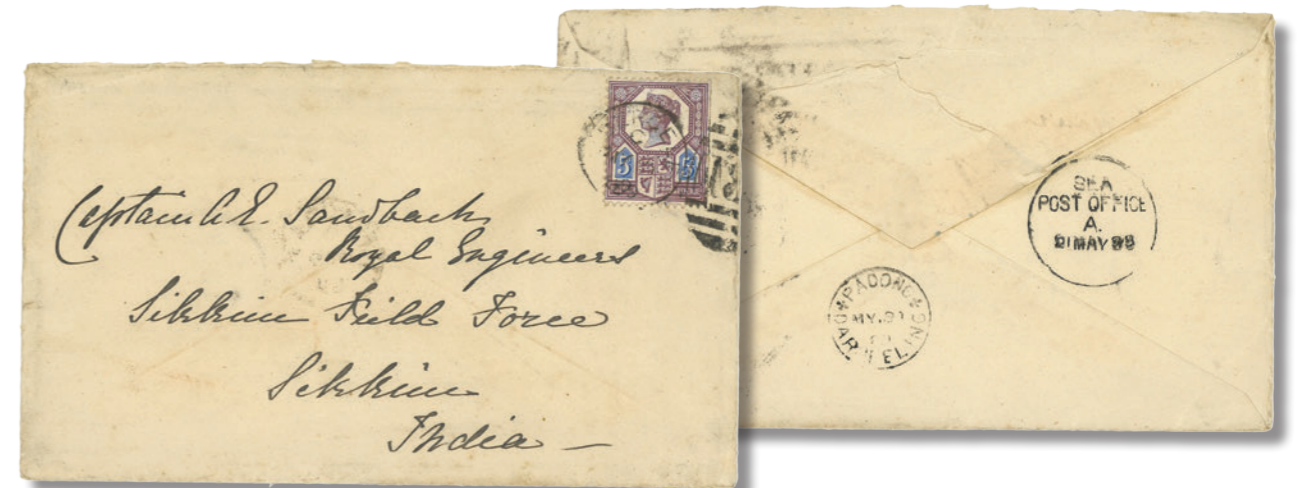 Captain A.E. Sandbach
Royal Engineers
Sikkim Field Force
Sikkim
India –
5 5
SEA
POST OFFICE
A.
21 MAY 88
PADONG
MY.31
DARJEELING